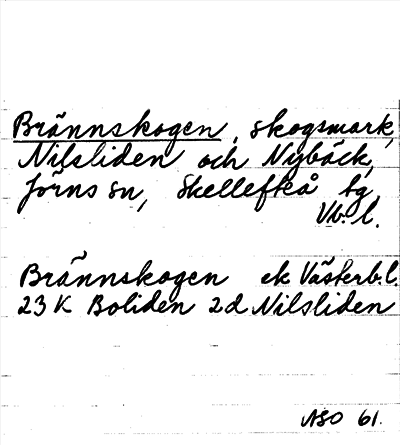 Brännskogen, skogsmark,
Nilsliden och Nybäck,
Jörns sn, Skellefteå tg,
Vb. l.
Brännskogen ek Västerb. l.
23 K Boliden 2d Nilsliden
ASO 61.